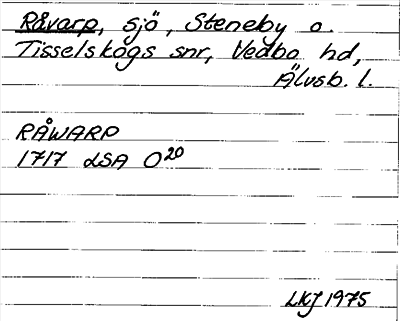 Råvarp, sjö, Steneby o.
Tisselskogs snr, Vedbo hd,
Älvsb. l.
RÅWARP
1717 LSA O20
LKJ 1975